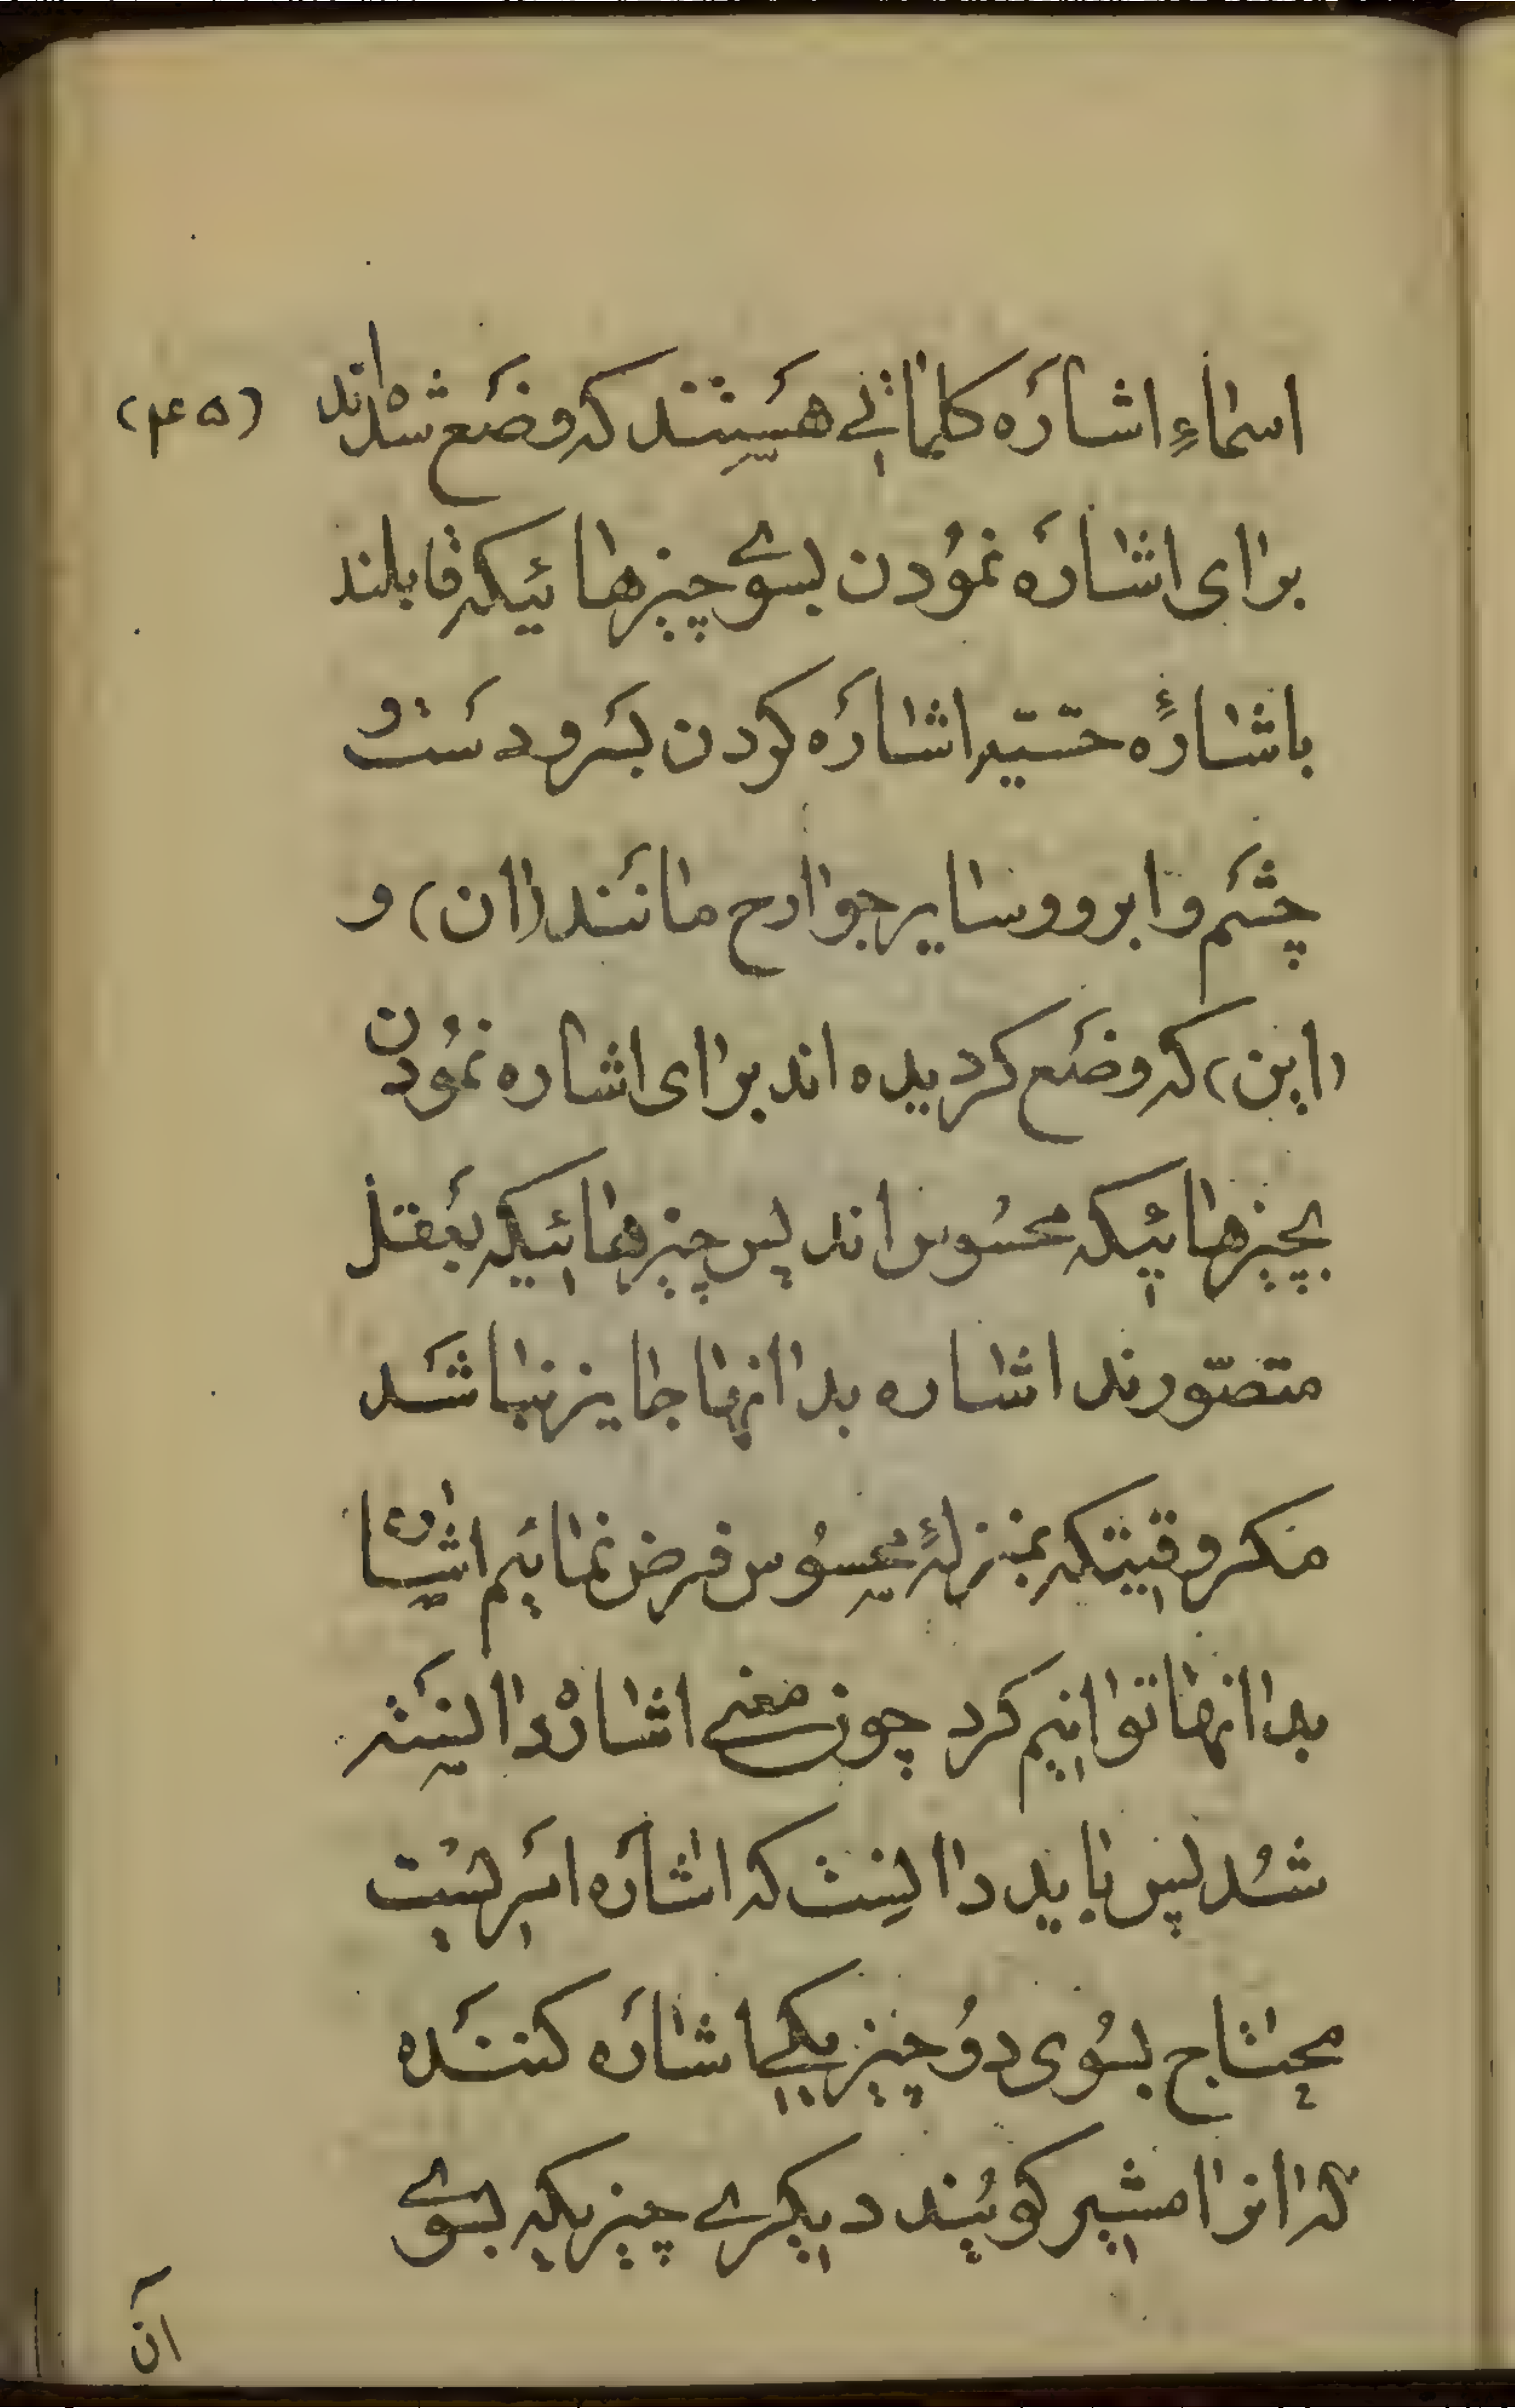 اسماءِ اشارَه کلماتی هَسِتند که وضَع شده‌اند (۴۵)
برای اشارَه نمُودن بسوی چیزهائیکه قابلند
باشارۀ حسّیه اشارَه کردن بسَر و دسَت و
چشَم و ابرو و سایر جوارح مانَند (ان) و
(این) که وضَع کردیده اند برای اشاره نمُودن
بچیزهائیکه محسُوس اند پس چیزهائیکه بعَقل
متصّورند اشاره بدانها جایز نباشَد
مکر وقتیکه بمنزلۀ محسُوس فرض نمائیم اشاره
بدانها توانیم کرد چون معنی اشاره دانسَته
شُد پس باید دانِست که اشارَه امَریست
محتاج بسُوی دوُ چیز یکی اشارَه کننَده
که انرا مشیر کویُند دیکری چیزیکه بسوی
آن